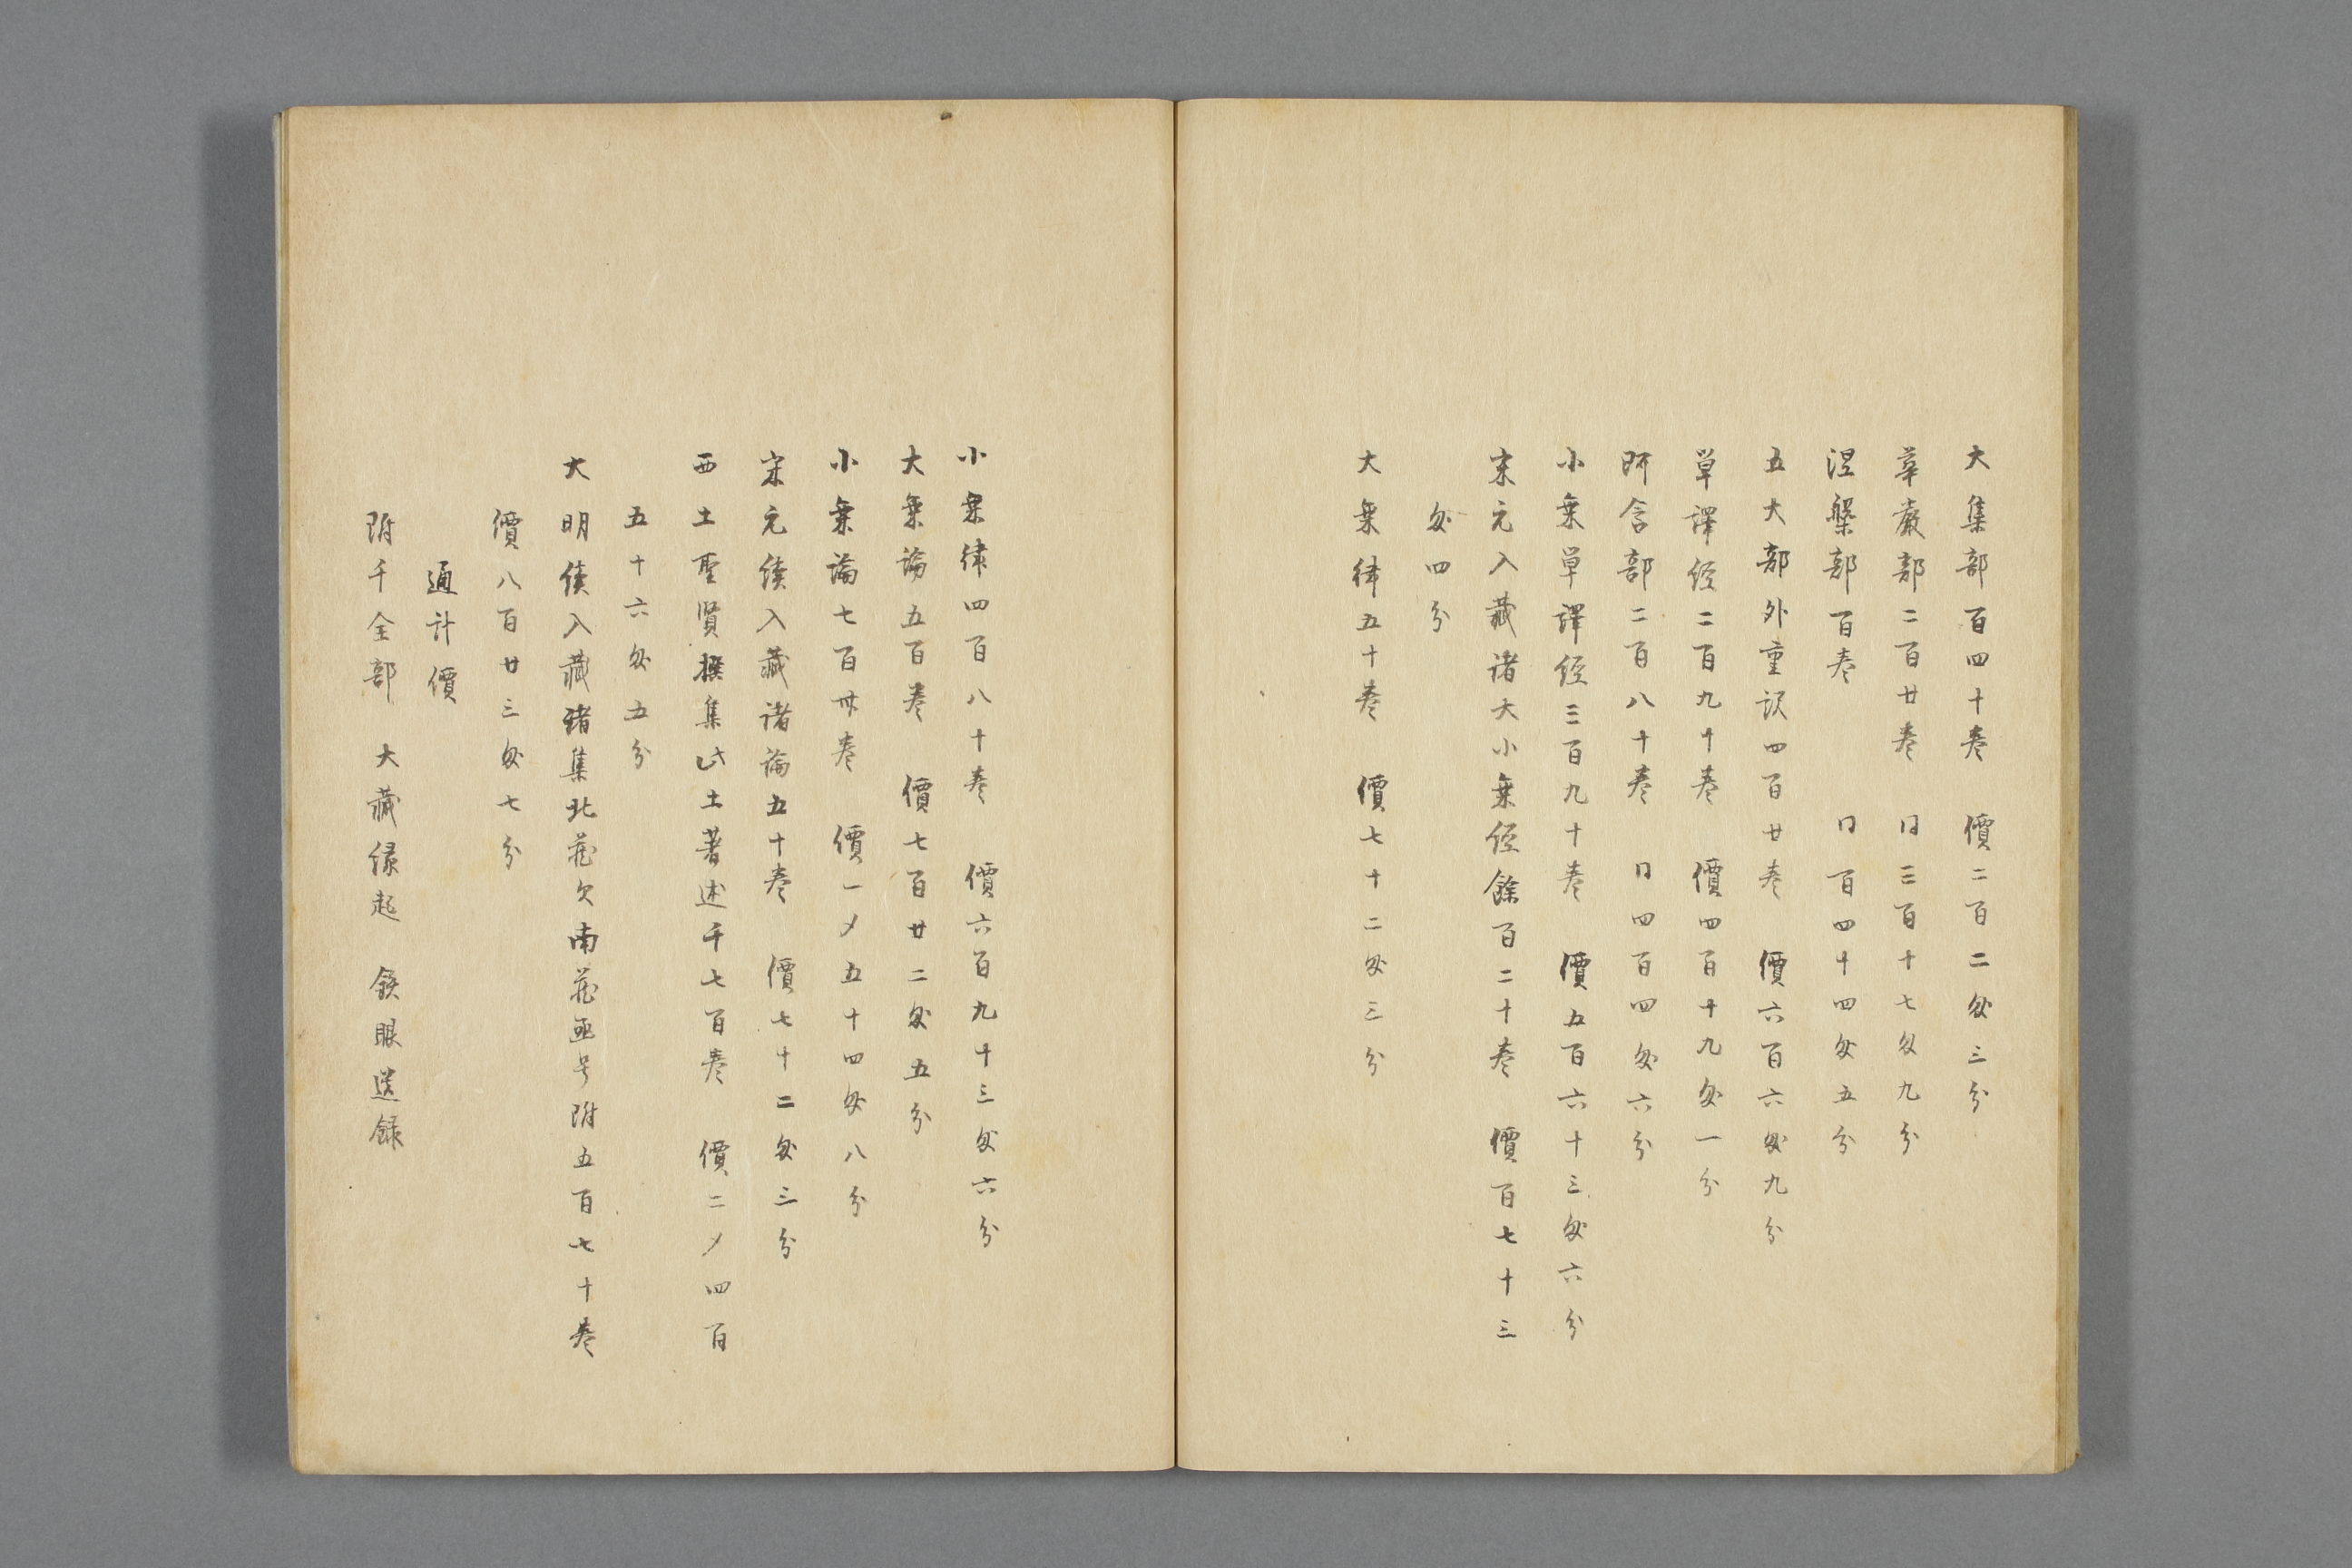 大集部百四十巻　價二百二匁三分
華嚴部二百廿巻　同三百十七匁九分
涅槃部百巻　同百四十四匁五分
五大部外重訳四百廿巻　價六百六匁九分
單譯経二百九十巻　價四百十九匁一分
阿含部二百八十巻　同四百四匁六分
小乗單譯経三百九十巻　價五百六十三匁六分
宋元入藏諸大小乗経餘百二十巻　價百七十三
匁四分
大乗律五十巻　價七十二匁三分
小乗律四百八十巻　價六百九十三匁六分
大乗論五百巻　價七百廿二匁五分
小乗論七百卅巻　價一〆五十四匁八分
宋元續入藏諸論五十巻　價七十二匁三分
西土聖賢撰集此土著述千七百巻　價二〆四百
五十六匁五分
大明續入藏諸集北蔵欠南蔵函号附五百七十巻
價八百廿三匁七分
通計價
附千全部　大藏縁起　鉄眼送録